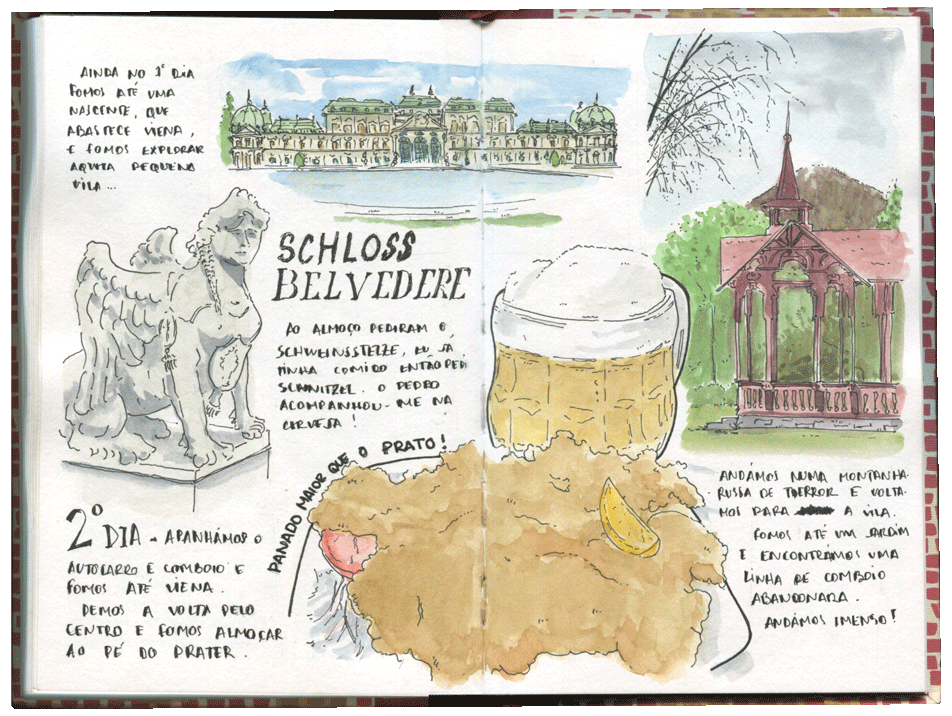 AINDA NO 1º DIA
FOMOS ATÉ UMA
NASCENTE, QUE
ABASTECE VIENA,
E FOMOS EXPLORAR
AQUELA PEQUENA
VILA...
SCHLOSS
BELVEDERE
AO ALMOÇO PEDIRAM O
SCHWEINSSTELZE, EU JÁ
TINHA COMIDO ENTÃO PEDI
SCHNITZEL. O PEDRO
ACOMPANHOU-ME NA
CERVEJA!
PANADO MAIOR QUE O PRATO!
2º DIA - APANHÁMOS O
AUTOCARRO E COMBOIO E
FOMOS ATÉ VIENA.
DEMOS A VOLTA PELO
CENTRO E FOMOS ALMOÇAR
AO PÉ DO PRATER.
ANDÁMOS NUMA MONTANHA-
RUSSA DE TERROR E VOLTA-
MOS PARA A VILA.
FOMOS ATÉ UM JARDIM
E ENCONTRAMOS UMA
LINHA DE COMBOIO
ABANDONADA.
ANDÁMOS IMENSO!